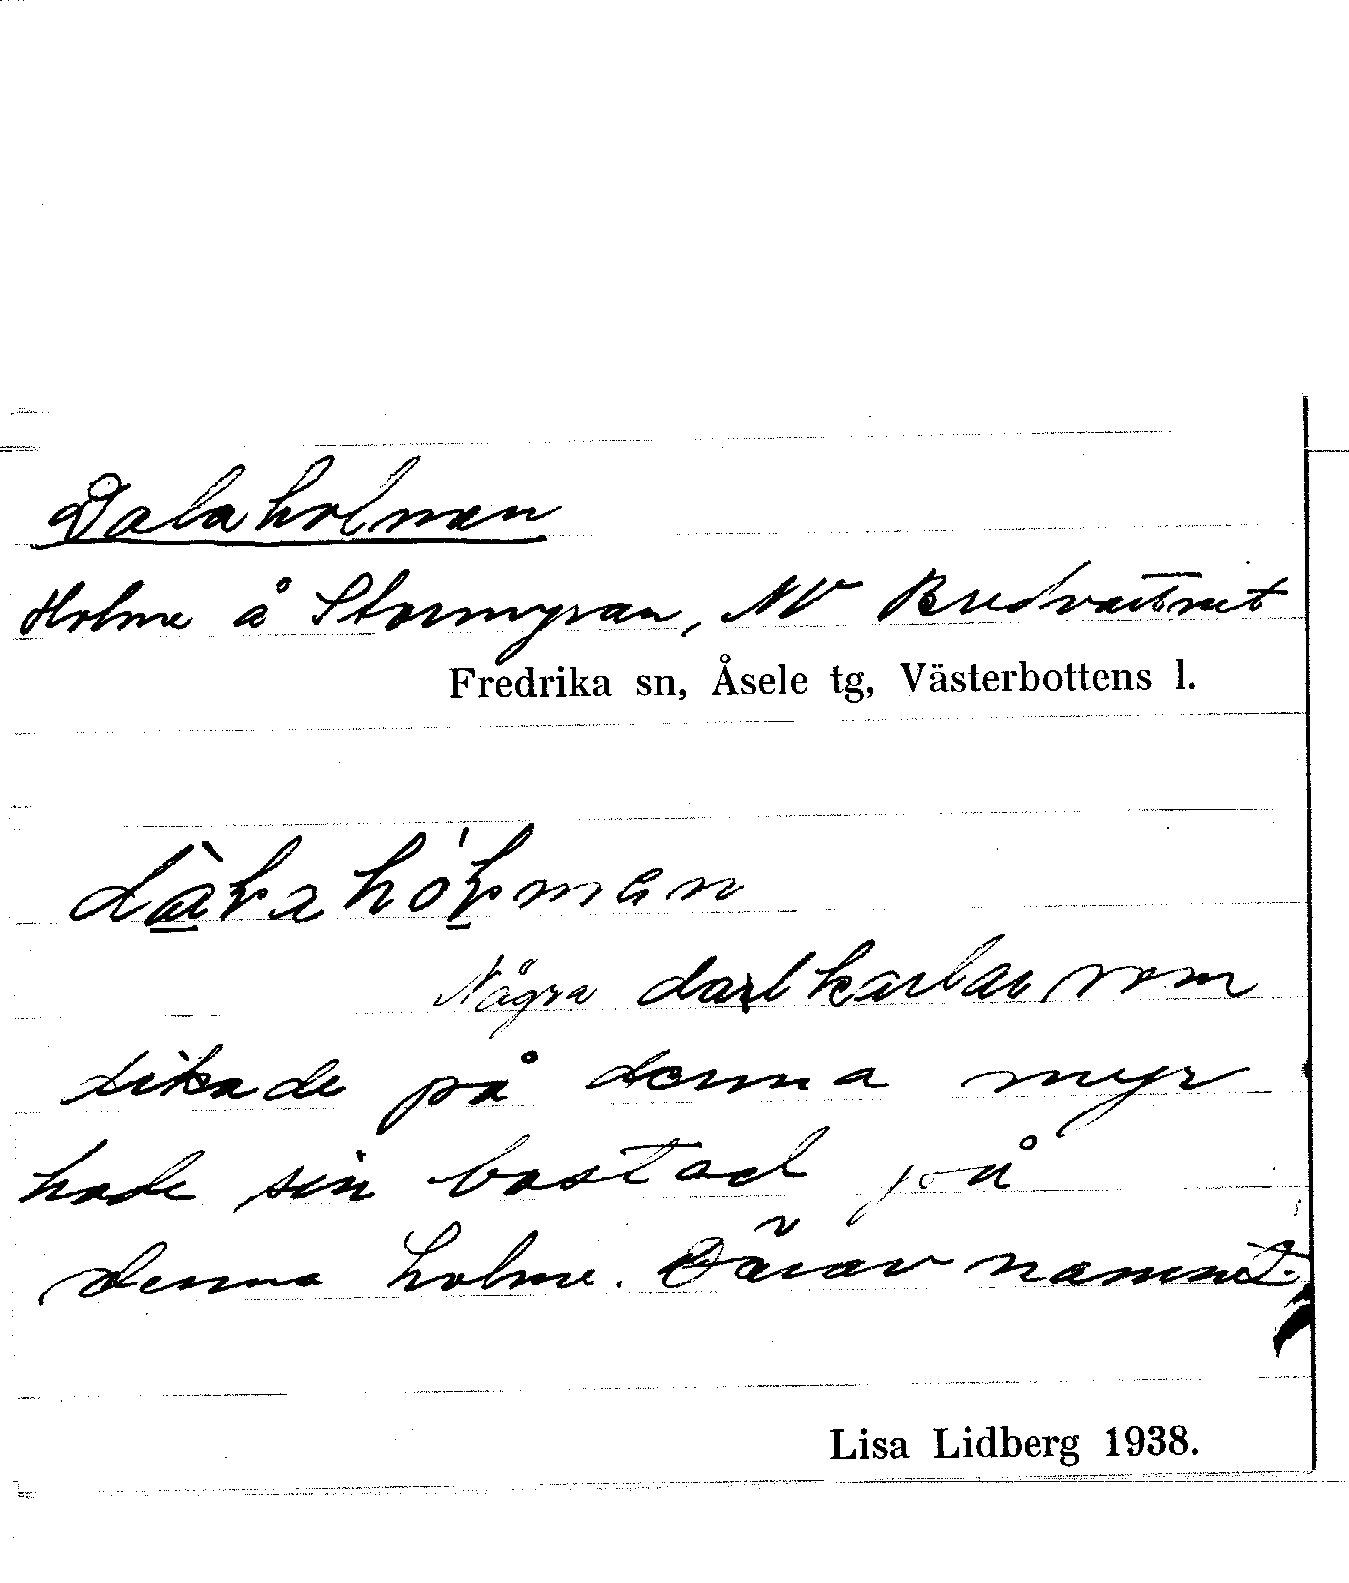 Dalaholmen
Holme å Stormyran, NV Bredvattnet
Fredrika sn, Åsele tg, Västerbottens l.
Några dalkarlar, som
dikade på denna myr
hade sin bostad på
denna holme. Därav namnet.
Lisa Lidberg 1938.